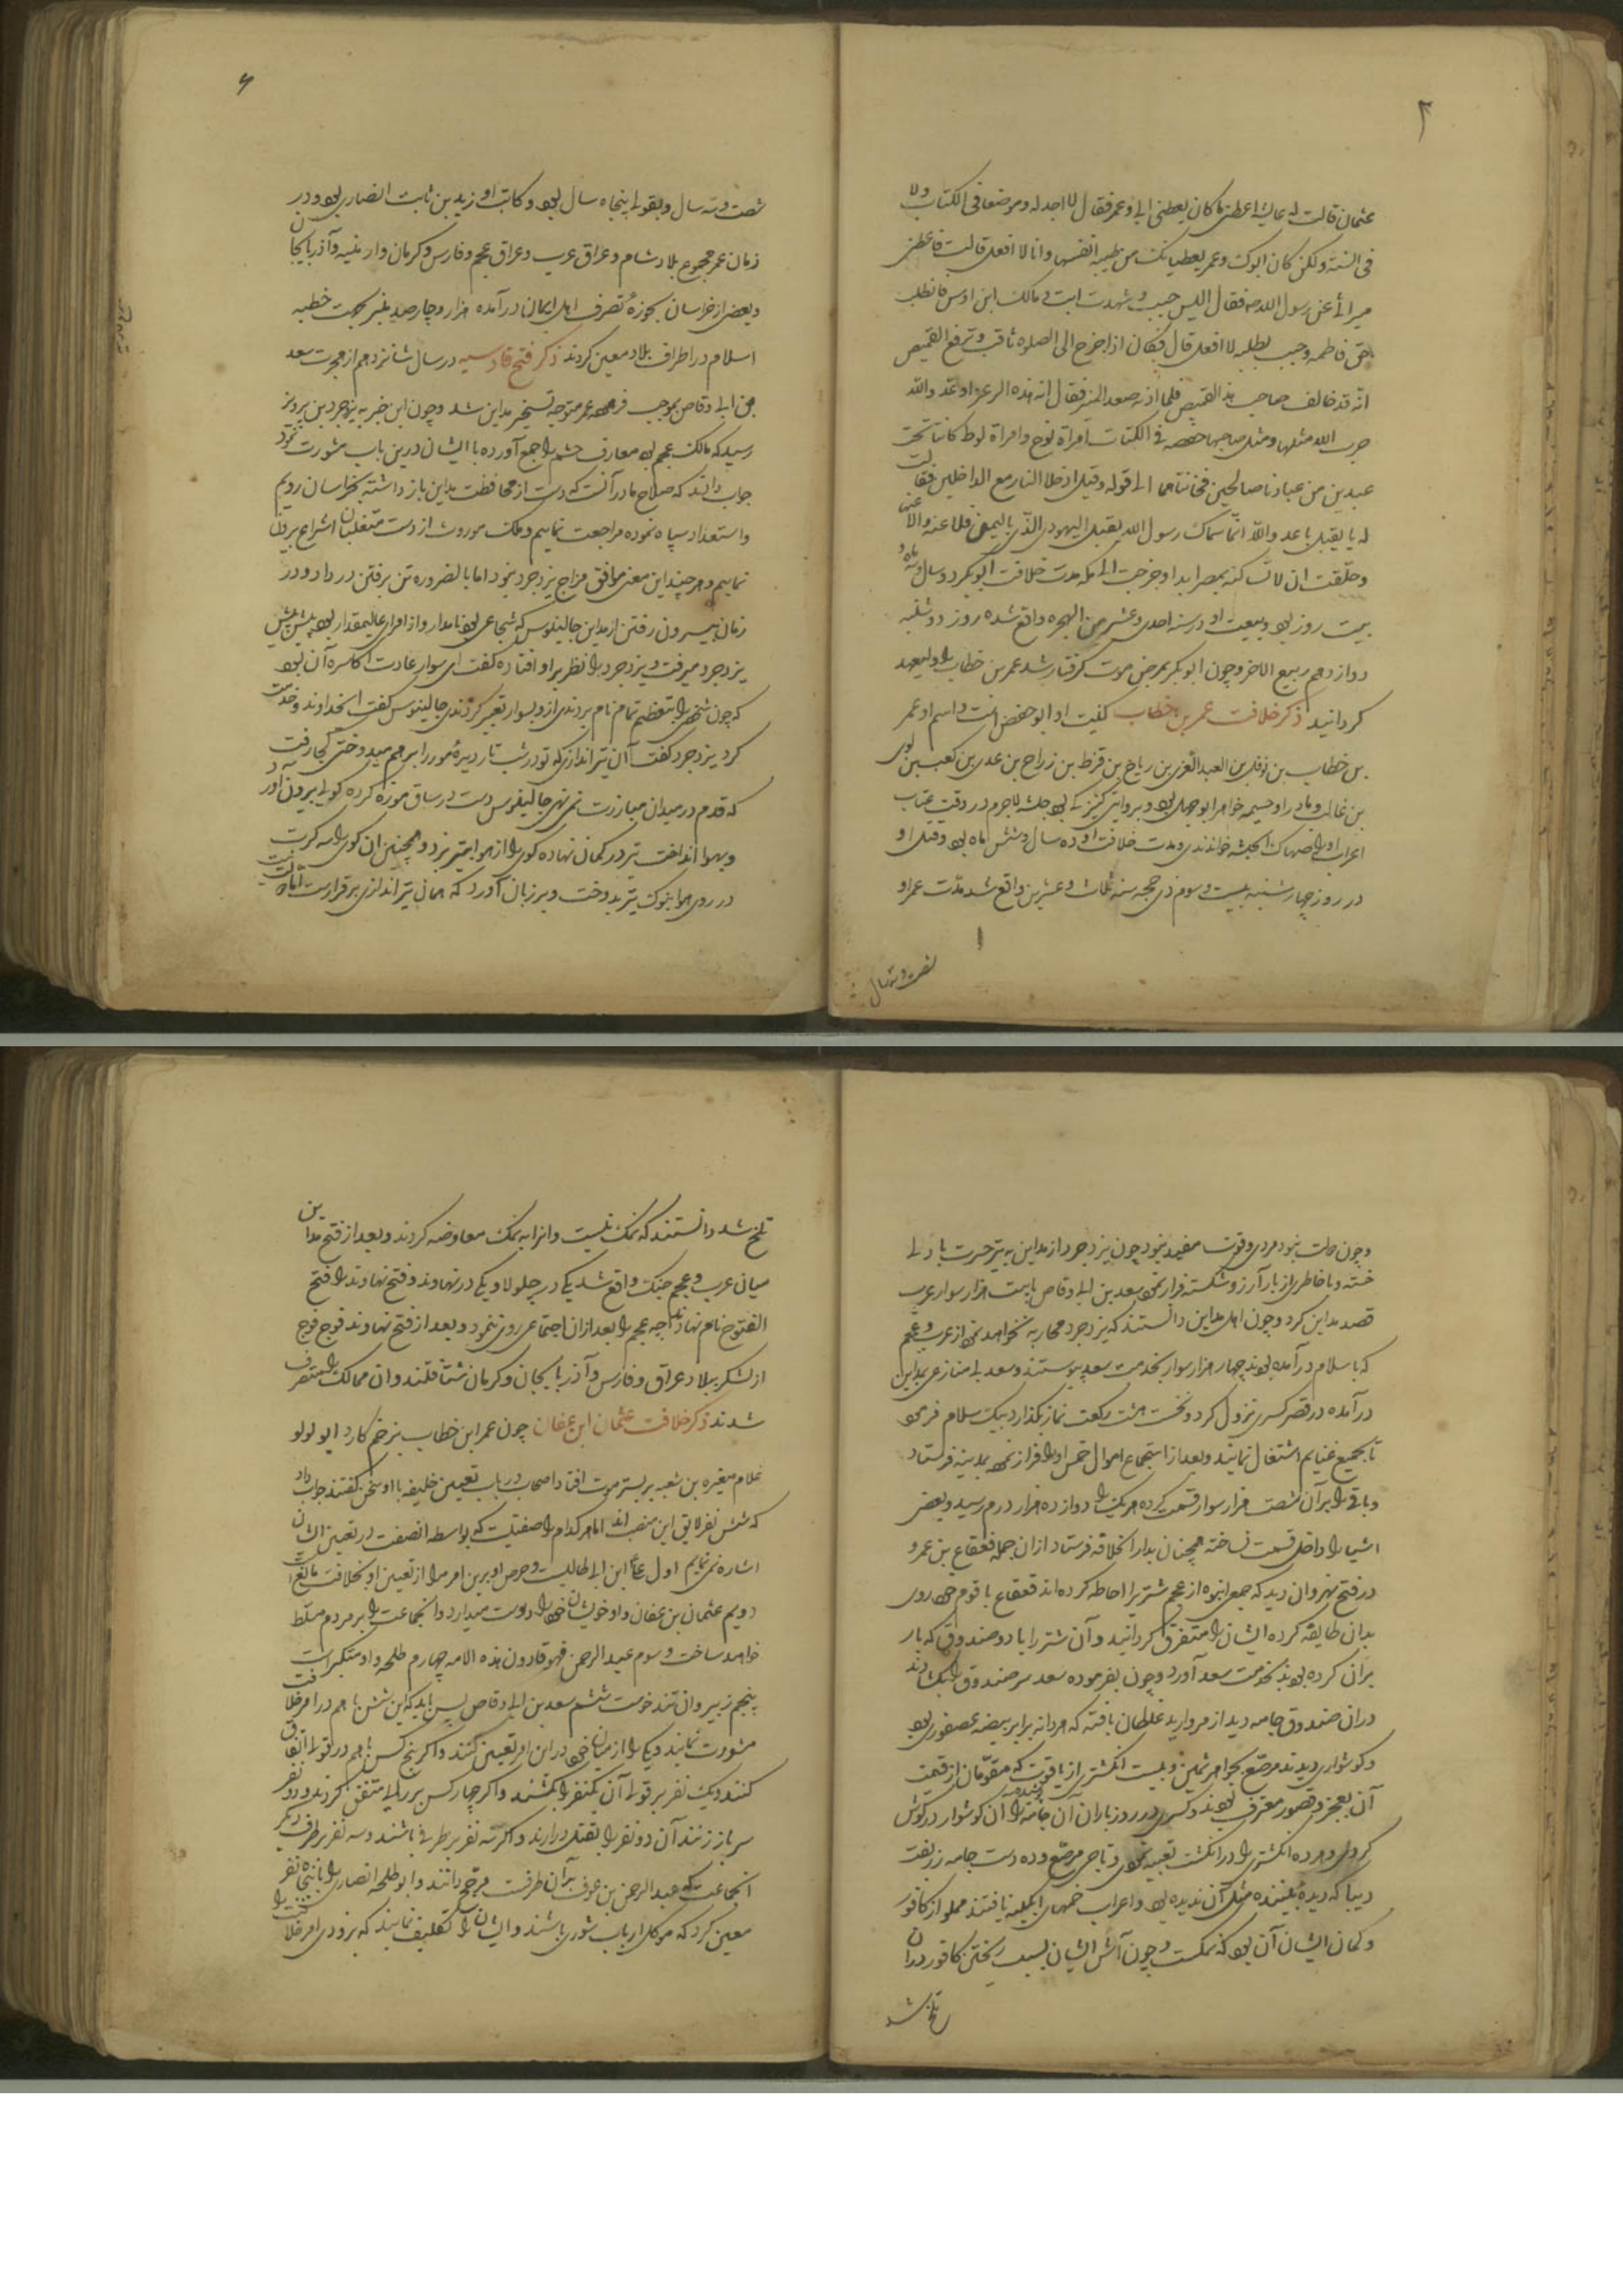 ۲
عثمان قالت له عایشه اعطنی ما کان یعطینی ابی و عمر فقال لا اجد له موضعا فی الکتاب ولا
فی السنة ولکن کان ابوک و عمر یعطیانک من طیبة انفسهما وانا لا افعل قالت فاعطنی
میراثی عن رسول الله صه فقال الیس جیت و شهدت انت و مالک ابن اوس
حق فاطمه وجیت تطلبیه لا افعل قال فکان اذا خرج الی الصلوه و ترفع القمیص
انه قد خالف صاحب هذا القمیص فلما اذته صعد المنبر فقال ان هذه الزعرا عدوالله
ضرب الله مثلها ومثل صاحبتها حفصه فی الکتاب امرأة نوح وامراة لوط کانتا تحت
عبدین من عبادنا صالحین فخانتاهما الی قوله وقیل ادخلا النار مع الداخلین فقالت
له یا نعثل یا عدو الله انما سماک رسول الله نعثل الیهودی الذی بالیمن فلاعنته ولاعنها
وحلفت ان لا تساکنه بمصر ابدا وخرجت الی مکه مدت خلافت ابوبکر دو سال و سه ماه و
بیست روز بود و بیعت او در سنه احدی و عشر من الهجره واقع شده روز دوشنبه
دوازدهم ربیع الاخر و چون ابوبکر بمرض موت گرفتار شد عمر بن خطاب را ولیعهد
گردانید ذکر خلافت عمر بن خطاب کنیت او ابو حفص است و اسم او عمر
بن خطاب بن نفیل بن العبد العزی بن ریاح بن قرط بن زراح بن عدی بن کعب بن لوی
بن غالب و مادر او حسیمه خواهر ابوجهل بود و بروایتی کنیزکی بود حبشه لاجرم در وقت عتاب
اعراب او را صهاک الحبشه خواندندی و مدت خلافت او ده سال و شش ماه بود و قتل او
در روز چهارشنبه بیست و سوم ذی حجه سنه ثلاث و عشرین واقع شد مدت عمر او
شصت و سه سال
شصت و سه سال و بقولی پنجاه سال بود و کاتب او زید بن ثابت انصاری بود و در
زمان عمر مجموع بلاد شام و عراق عرب و عراق عجم و فارس و کرمان و ارمنیه و آذربایجان
و بعضی از خراسان بحوزه تصرف اهل ایمان در آمده هزار و چارصد منبر بجهت خطبه
اسلام در اطراف بلاد معین کردند ذکر فتح قادسیه در سال شانزدهم از هجرت سعد
بن ابی وقاص بموجب فرموده عمر متوجه تسخیر مداین شد و چون این خبر به یزدجرد بن پرویز
رسید که مالک عجم بود معارف حشم را جمع آورده با ایشان درین باب مشورت نمود
جواب دادند که صلاح ما در آنست که دست از محافظت مداین باز داشته بخراسان رویم
و استعداد سپاه نموده مراجعت نماییم و ملک موروث از دست متغلبان انتزاع بیرون
نماییم و هر چند این معنی موافق مزاج یزدجرد نبود اما بالضروره تن برفتن در داد و در
زمان بیرون رفتن از مداین جالینوس که شجاعی بود نامدار و از امرای عالیمقدار بود پیش پیش
یزدجرد میرفت و یزدجرد را نظر بر او افتاده گفت ای سوار عادت اکاسره آن بود
که چون شخصی را بتعظیم تمام نام بردندی ازو بسوار تعبیر کردندی جالینوس گفت ای خداوند و خدمت
کرد یزدجرد گفت آن تیراندازی که تو در شب تار دیده مور را بر هم میدوختی کجا رفت
که قدم در میدان مبارزت نمی نهی جالینوس دست در ساق موزه کرده گویی بیرون آورد
و بهوا انداخت تیر در کمان نهاده گوی را از هوا بتیر بزد و همچنین آن گوی را سه کرت
در روی هوا بنوک تیر بدوخت و بر زبان آورد که همان تیراندازی برقرارست
و چون دولت نبود مردی و قوت مفید نبود چون یزدجرد از مداین به تیر حسرت با دلی
خسته و با خاطری از بار آرزو شکسته فرار نمود سعد بن ابی وقاص با بیست هزار سوار عرب
قصد مداین کرد و چون اهل مداین دانستند که یزدجرد محاربه نخواهد نمود از عرب و عجم
که باسلام در آمده بودند چهار هزار سوار بخدمت سعد پیوستند و سعد بی منازعی بمداین
در آمده در قصر کسری نزول کرد و نخست هشت رکعت نماز بگذارد بیک سلام فرمود
تا بجمع غنایم اشتغال نمایند و بعد از استجماع اموال خمس او را فراز نموده بمدینه فرستاد
و باقی را بر آن شصت هزار سوار قسمت کرده هر یک را دوازده هزار درم رسید و بعضی
اشیا را داخل قسمت نساخته همچنان بدار الخلافه فرستاد از آن جمله قعقاع بن عمرو
در فتح نهروان دید که جمعی انبوه از عجم شتریرا احاطه کرده اند قعقاع با قوم خود روی
بدان طایفه کرده ایشان را متفرق گردانید و آن شتر را با دو صندوق که بار
بران کرده بودند بخدمت سعد آورد و چون بفرموده سعد سر صندوق را بگشادند
در ان صندوق جامه دید از مروارید غلطان بافته که هر دانه برابر بیضه عصفوری بود
و گوشواری دیدند مرصع بجواهر ثمین و بیست انگشتری از یاقوت که مقومان از قیمت
آن بعجز و قصور معترف بودند و کسری در روز باران آن جامه را پوشیده و آن گوشوار در گوش
کردی و هر ده انگشتری را در انگشت تعبیه نمودی و تاجی مرصع و ده دست جامه زربفت
دیبا که دیده بیننده مثل آن ندیده بود و اعراب خمهای آبگینه یافتند مملو از کافور
و گمان ایشان آن بود که نمکست و چون آش ایشان بسبب ریختن کافور دران
تلخ شد
تلخ شد دانستند که نمک نیست و انرا به نمک معاوضه کردند و بعد از فتح مداین
میانی عرب و عجم جنگ واقع شد یکی در جلولا و یکی در نهاوند و فتح نهاوند را فتح
الفتوح نام نهادند چه عجم را بعد از ان اجتماعی روی ننمود و بعد از فتح نهاوند فوج فوج
از لشکر ببلاد عراق و فارس و آذربایجان و کرمان شتافتند و ان ممالک را متصرف
شدند ذکر خلافت عثمان ابن عفان چون عمر ابن خطاب بزخم کارد ابو لولو
غلام مغیره بن شعبه بر بستر موت افتاد اصحاب در باب تعیین خلیفه با او سخن گفتند جواب داد
که شش نفر لایق این منصب اند اما هر کدام را صفتیست که بواسطه آن صفت در تعیین ایشان
اشاره نمی نمایم اول علی ابن ابی طالبست و حرص او برین امر مرا از تعیین او بخلافت مانع است
دویم عثمان بن عفان و او خویشان خود را دوست میدارد و انجماعت را بر مردم مسلط
خواهد ساخت و سوم عبد الرحمن فهو قارون هذه الامه چهارم طلحه و او متکبر است
پنجم زبیر و ان تند خوست ششم سعد بن ابی وقاص پس باید که این شش با هم در امر خلافت
مشورت نمایند و یکی را از میان خود در این امر تعیین کنند و اگر پنج کس با هم در قولی اتفاق
کنند و یک نفر بر قولی آن یکنفر را بکشند و اگر چهار کس بر رایی متفق گردند و دو نفر
سر باز زنند آن دو نفر را بقتل در ارند و اگر سه نفر بر طرفی باشند و سه نفر بر طرف دیگر
انجماعت که عبد الرحمن بن عوف بر آن طرفست مرجح دانند و ابو طلحه انصاری را با پنجاه نفر
معین کرد که موکل ارباب شوری باشند و ایشان را تکلیف نمایند که بزودی امر خلافت را